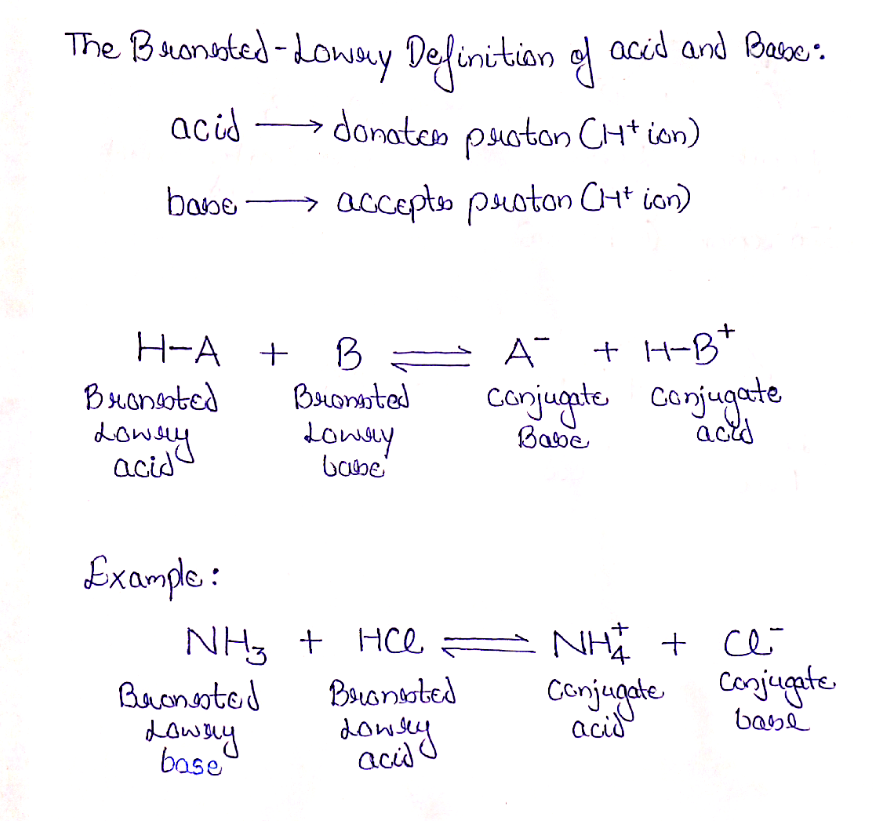 The Bronsted-Lowry Definition of acid and Base:
acid ⟶ donates proton (H⁺ ion)
base ⟶ accepts proton (H⁺ ion)
H-A + B ⇌ A⁻ + H-B⁺
Bronsted Bronsted conjugate conjugate
Lowry Lowry Base acid
acid base
Example:
NH₃ + HCl ⇌ NH₄⁺ + Cl⁻
Bronsted Bronsted Conjugate Conjugate
Lowry Lowry acid base
base acid